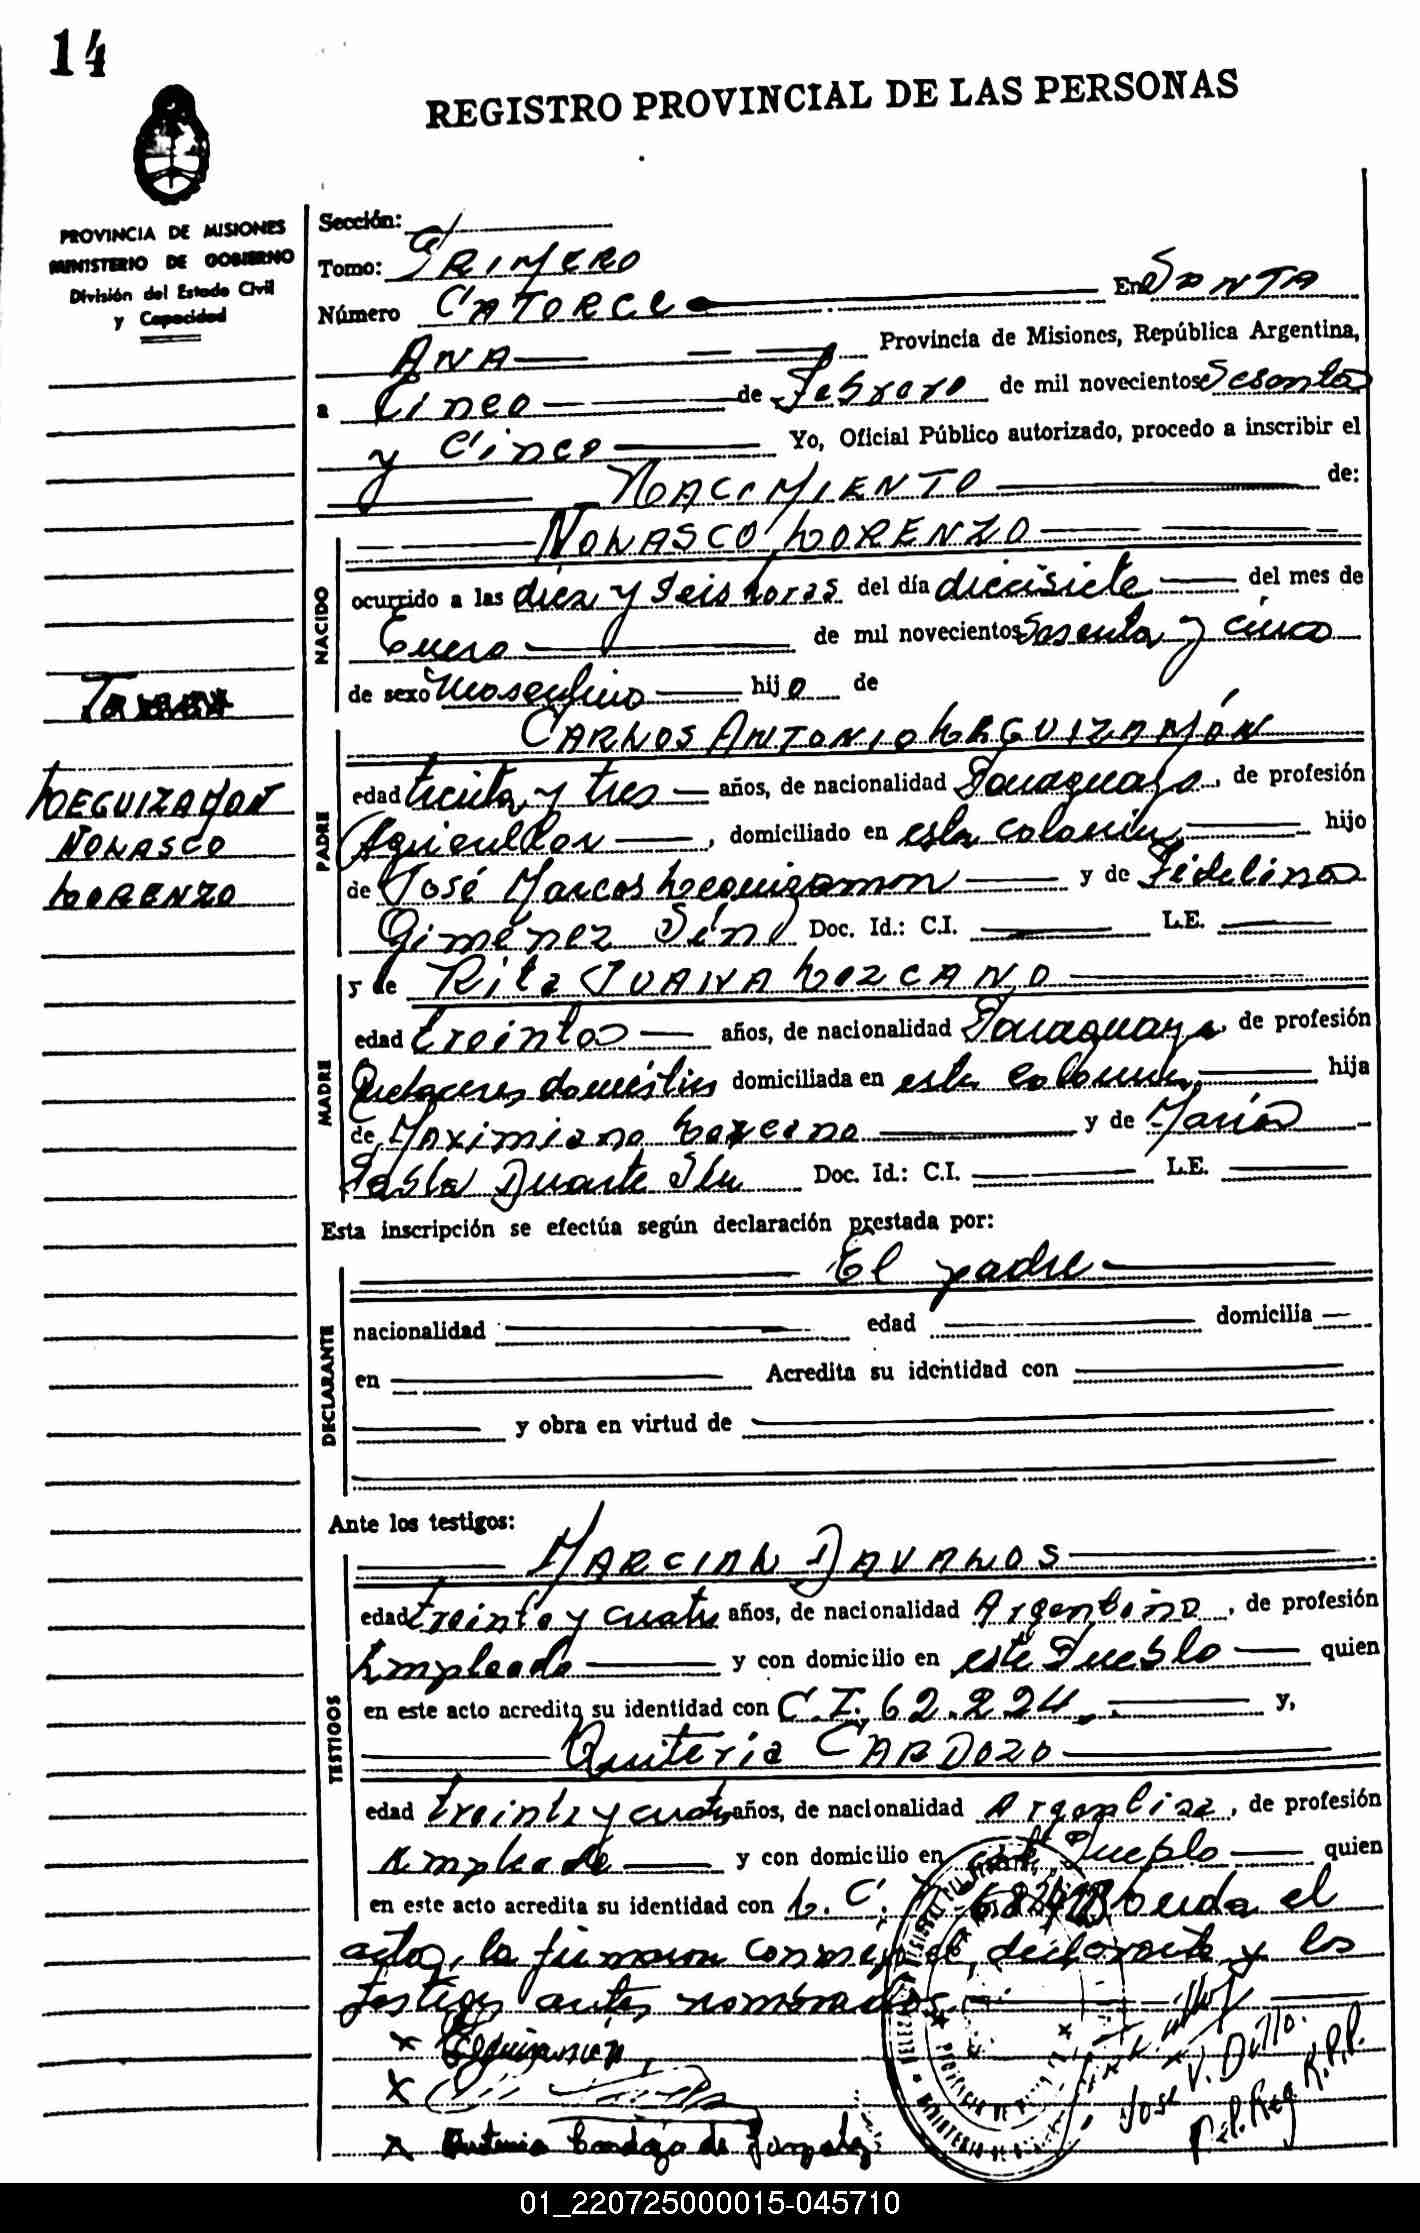 14
REGISTRO PROVINCIAL DE LAS PERSONAS
PROVINCIA DE MISIONES
MINISTERIO DE GOBIERNO
División del Estado Civil
y Capacidad
LEGUIZAMON
NOLASCO
LORENZO
Sección:
Tomo: PRIMERO
Número CATORCE En SANTA
ANA Provincia de Misiones, República Argentina,
a Cinco de Febrero de mil novecientos Sesenta
y Cinco Yo, Oficial Público autorizado, procedo a inscribir el
NACIMIENTO de:
NACIDO
NOLASCO LORENZO
ocurrido a las diez y seis horas del día diecisiete del mes de
Enero de mil novecientos Sesenta y cinco
de sexo Masculino hijo de
PADRE
CARLOS ANTONIO LEGUIZAMÓN
edad treinta y tres años, de nacionalidad Paraguaya, de profesión
Agricultor, domiciliado en esta colonia, hijo
de José Marcos Leguizamon y de Fidelina
Giménez Doc. Id.: C.I. L.E.
MADRE
y de Rita JUANA LEZCANO
edad treinta años, de nacionalidad Paraguaya, de profesión
Quehaceres domésticos domiciliada en esta colonia, hija
de Maximiano Lezcano y de María
Pabla Duarte Doc. Id.: C.I. L.E.
Esta inscripción se efectúa según declaración prestada por:
DECLARANTE
El padre
nacionalidad edad domicilia
en Acredita su identidad con
y obra en virtud de
Ante los testigos:
TESTIGOS
MARCIAL DAVALOS
edad treinta y cuatro años, de nacionalidad Argentino, de profesión
Empleado y con domicilio en este Pueblo quien
en este acto acredita su identidad con C.I. 62.224. y,
Quiteria CARDOZO
edad treinta y cuatro años, de nacionalidad Argentina, de profesión
Empleada y con domicilio en este Pueblo quien
en este acto acredita su identidad con L.C. Leida el
acta, la firman conmigo el declarante y los
testigos antes nombrados.
x Leguizamón
x
x Cardozo de Gonzalez
José V. Dullo.
01_220725000015-045710